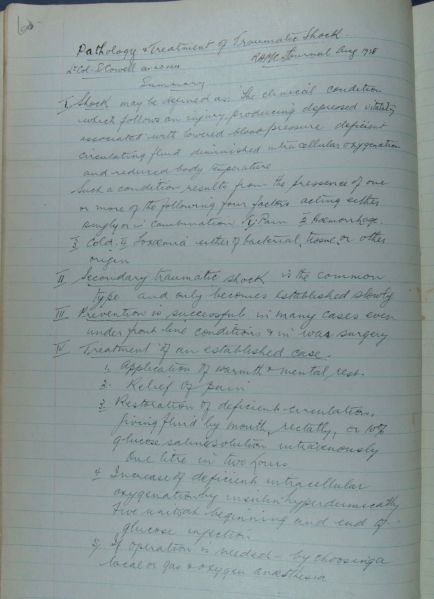 Pathology & Treatment of Traumatic Shock
Lt Col. E Cowell RAMC Journal Aug 1928
Summary
I. Shock may be defined as. The clinical condition
which follows on injury, producing depressed vitality
associated with lowered blood pressure deficient
circulating fluid diminished intracellular oxygenation
and reduced body temperature
Such a condition results from the presence of one
or more of the following four factors acting either
singly or in combination 1) Pain 2) Haemorrhage.
3 Cold. 4 Toxaemia either of bacterial, tissue or other
origin
II Secondary traumatic shock is the common
type and only becomes established slowly
III Prevention is successful in many cases even
under front line conditions & in war surgery
IV Treatment of an established case.
1. Application of warmth & mental rest.
2. Relief of pain
3 Restoration of deficient circulation,
giving fluid by mouth, rectally, or 10%
glucose saline solution intravenously
One litre in two hours
4 Increase of deficient intracellular
oxygenation by insulin hyperdermically
Five units at beginning and end of
glucose injection
5) If operation is needed - by choosing a
local or gas & oxygen anaesthesia